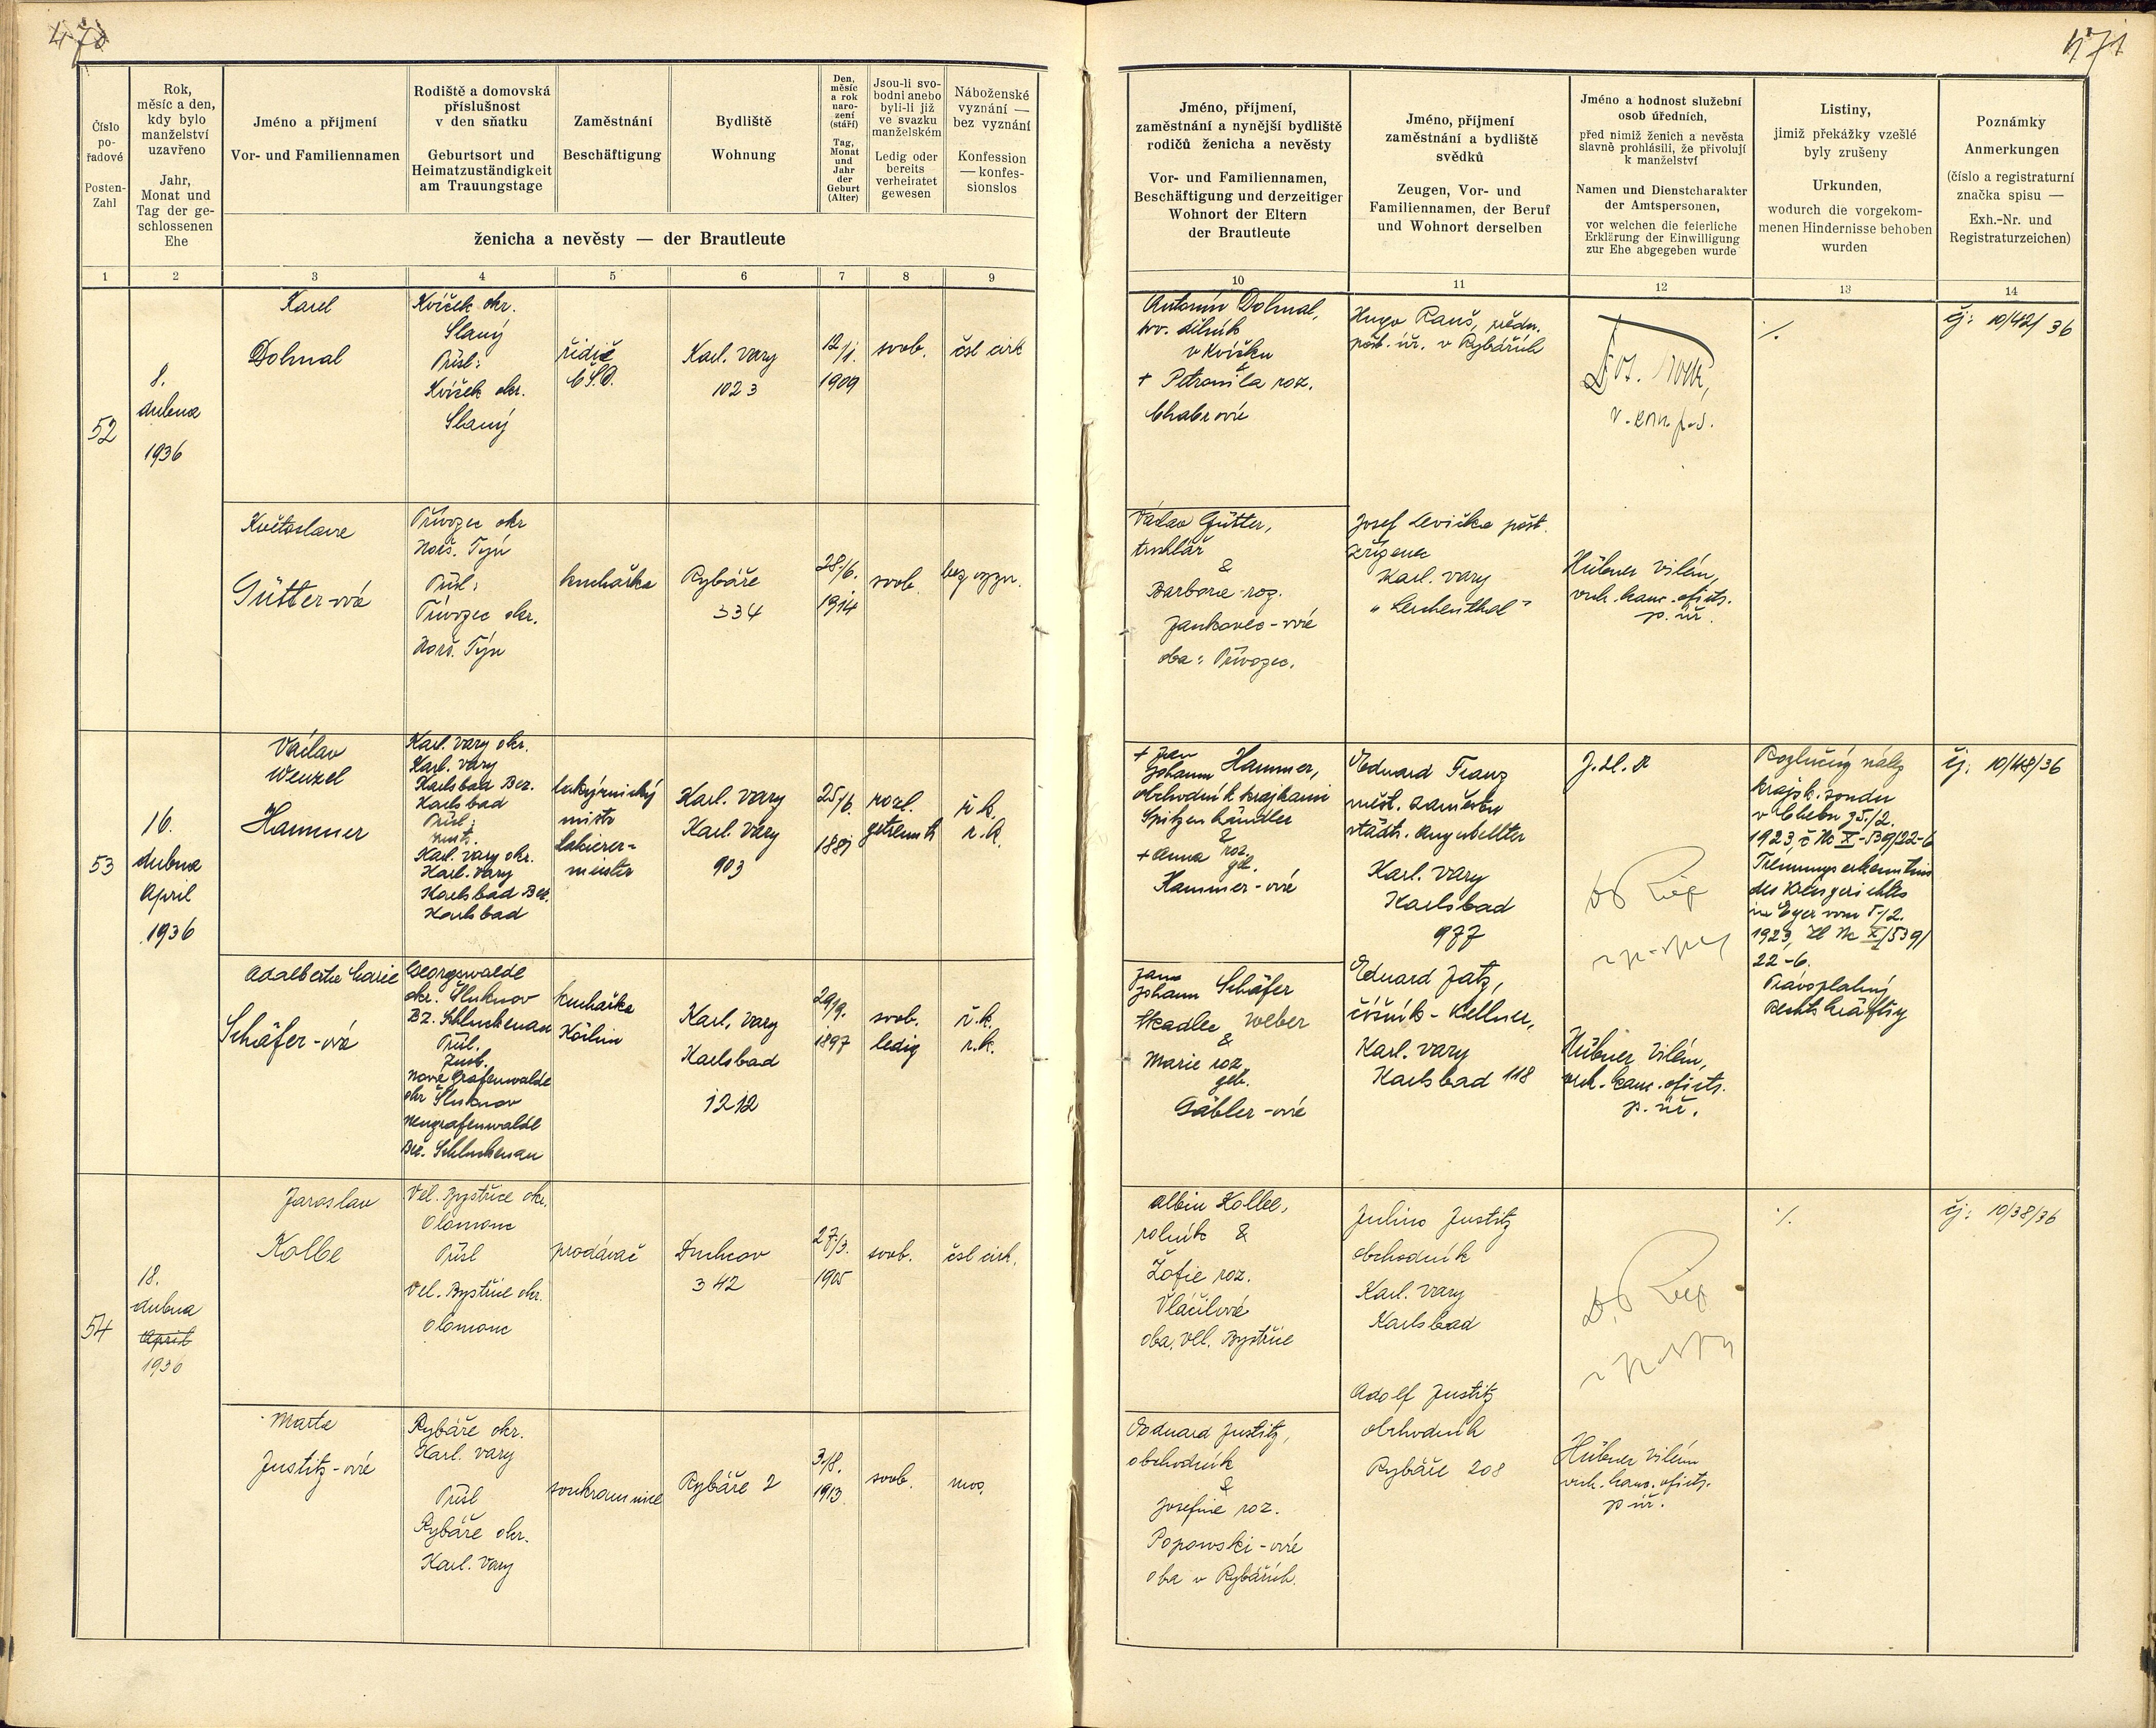 470
471
Číslo
po-
řadové
Posten-
Zahl
Rok,
měsíc a den,
kdy bylo
manželství
uzavřeno
Jahr,
Monat und
Tag der ge-
schlossenen
Ehe
Jméno a přijmení
Vor- und Familiennamen
Rodiště a domovská
příslušnost
v den sňatku
Geburtsort und
Heimatzuständigkeit
am Trauungstage
Zaměstnání
Beschäftigung
Bydliště
Wohnung
Den,
měsíc
a rok
naro-
zení
(stáří)
Tag,
Monat
und
Jahr
der
Geburt
(Alter)
Jsou-li svo-
bodni anebo
byli-li již
ve svazku
manželském
Ledig oder
bereits
verheiratet
gewesen
Náboženské
vyznání —
bez vyznání
Konfession
— konfes-
sionslos
ženicha a nevěsty — der Brautleute
Jméno, příjmení,
zaměstnání a nynější bydliště
rodičů ženicha a nevěsty
Vor- und Familiennamen,
Beschäftigung und derzeitiger
Wohnort der Eltern
der Brautleute
Jméno, příjmení
zaměstnání a bydliště
svědků
Zeugen, Vor- und
Familiennamen, der Beruf
und Wohnort derselben
Jméno a hodnost služební
osob úředních,
před nimiž ženich a nevěsta
slavně prohlásili, že přivolují
k manželství
Namen und Dienstcharakter
der Amtspersonen,
vor welchen die feierliche
Erklärung der Einwilligung
zur Ehe abgegeben wurde
Listiny,
jimiž překážky vzešlé
byly zrušeny
Urkunden,
wodurch die vorgekom-
menen Hindernisse behoben
wurden
Poznámky
Anmerkungen
(číslo a registraturní
značka spisu —
Exh.-Nr. und
Registraturzeichen)
1 2 3 4 5 6 7 8 9 10 11 12 13 14
52
8.
dubna
1936
Karel
Dolmal
Kvíček okr.
Slaný
Přísl:
Kvíček okr.
Slaný
řidič
ČSD.
Karl. Vary
1023
12/1.
1909
svob.
čsl cirk
Antonín Dolmal,
tov. dělník
v Kvíčku
&
+ Petronila roz.
Chabrová
Hugo Rauš, předn.
pošt. úř. v Rybářích
·/.
čj: 10/42/36
Květoslava
Gütter-ová
Přívozec okr
Horš. Týn
Přísl:
Přívozec okr.
Horš. Týn
kuchařka
Rybáře
334
28./6.
1914
svob.
bez vyzn.
Václav Gütter,
truhlář
&
Barbora roz.
Jankovec-ová
oba: Přívozec.
Josef Levička pošt.
zřízenec
Karl. Vary
"Lerchenthal"
Hübner Vilém,
vrch. kanc. oficts.
p. úř.
53
16.
dubna
April
1936
Václav
Wenzel
Hammer
Karl. Vary okr.
Karl. Vary
Karlsbad Bez.
Karlsbad
Přísl:
Zust.
Karl. Vary okr.
Karl. Vary
Karlsbad Bez.
Karlsbad
lakýrnický
mistr
Lakierer-
meister
Karl. Vary
Karl. Vary
903
25/6.
1881
rozl.
getrennt
ř. k.
r. k.
+ Jan
Johann Hammer,
obchodník krajkami
Spitzenhändler
&
+ Anna roz.
geb.
Hammer-ová
Eduard Franz
měst. zaměstn
städt. Angestellter
Karl. Vary
Karlsbad
977
Rozlučný nález
krajsk. soudu
v Chebu z 5./2.
1923, č Nc X-539/22-6
Trennungserkenntnis
des Kreisgerichtes
in Eger vom 5./2.
1923, Zl Nc X/539/
22-6.
Právoplatný
Rechtskräftig
čj: 10/48/36
Adalberta Marie
Schäfer-ová
Georgswalde
okr. Šluknov
Bz. Schluckenau
Přísl.
Zust.
Nové Grafenwalde
okr Šluknov
Neugrafenwalde
Bez. Schluckenau
kuchařka
Köchin
Karl. Vary
Karlsbad
1212
29/9.
1897
svob.
ledig
ř. k.
r. k.
Jan
Johann Schäfer
tkadlec Weber
&
Marie roz.
geb.
Gäbler-ová
Eduard Jatz,
číšník - Kellner,
Karl. Vary
Karlsbad 118
Hübner Vilém,
vrch. kanc. oficts.
p. úř.
54
18.
dubna
April
1936
Jaroslav
Kolbe
Vel. Bystřice okr.
Olomouc
Přísl
Vel. Bystřice okr.
Olomouc
prodávač
Duchcov
342
27/3.
1905
svob.
čsl cirk.
Albin Kolbe,
rolník &
Žofie roz.
Vláčilová
oba, Vel. Bystřice
Julius Justitz
obchodník
Karl. Vary
Karlsbad
·/.
čj: 10/38/36
Marta
Justitz-ová
Rybáře okr.
Karl. Vary
Přísl
Rybáře okr.
Karl. Vary
soukromnice
Rybáře 2
3./8.
1913
svob.
mos.
Eduard Justitz,
obchodník
&
Josefine roz.
Popowski-ová
oba v Rybářích.
Adolf Justitz
obchodník
Rybáře 208
Hübner Vilém
vrch. kanc. oficts.
p. úř.